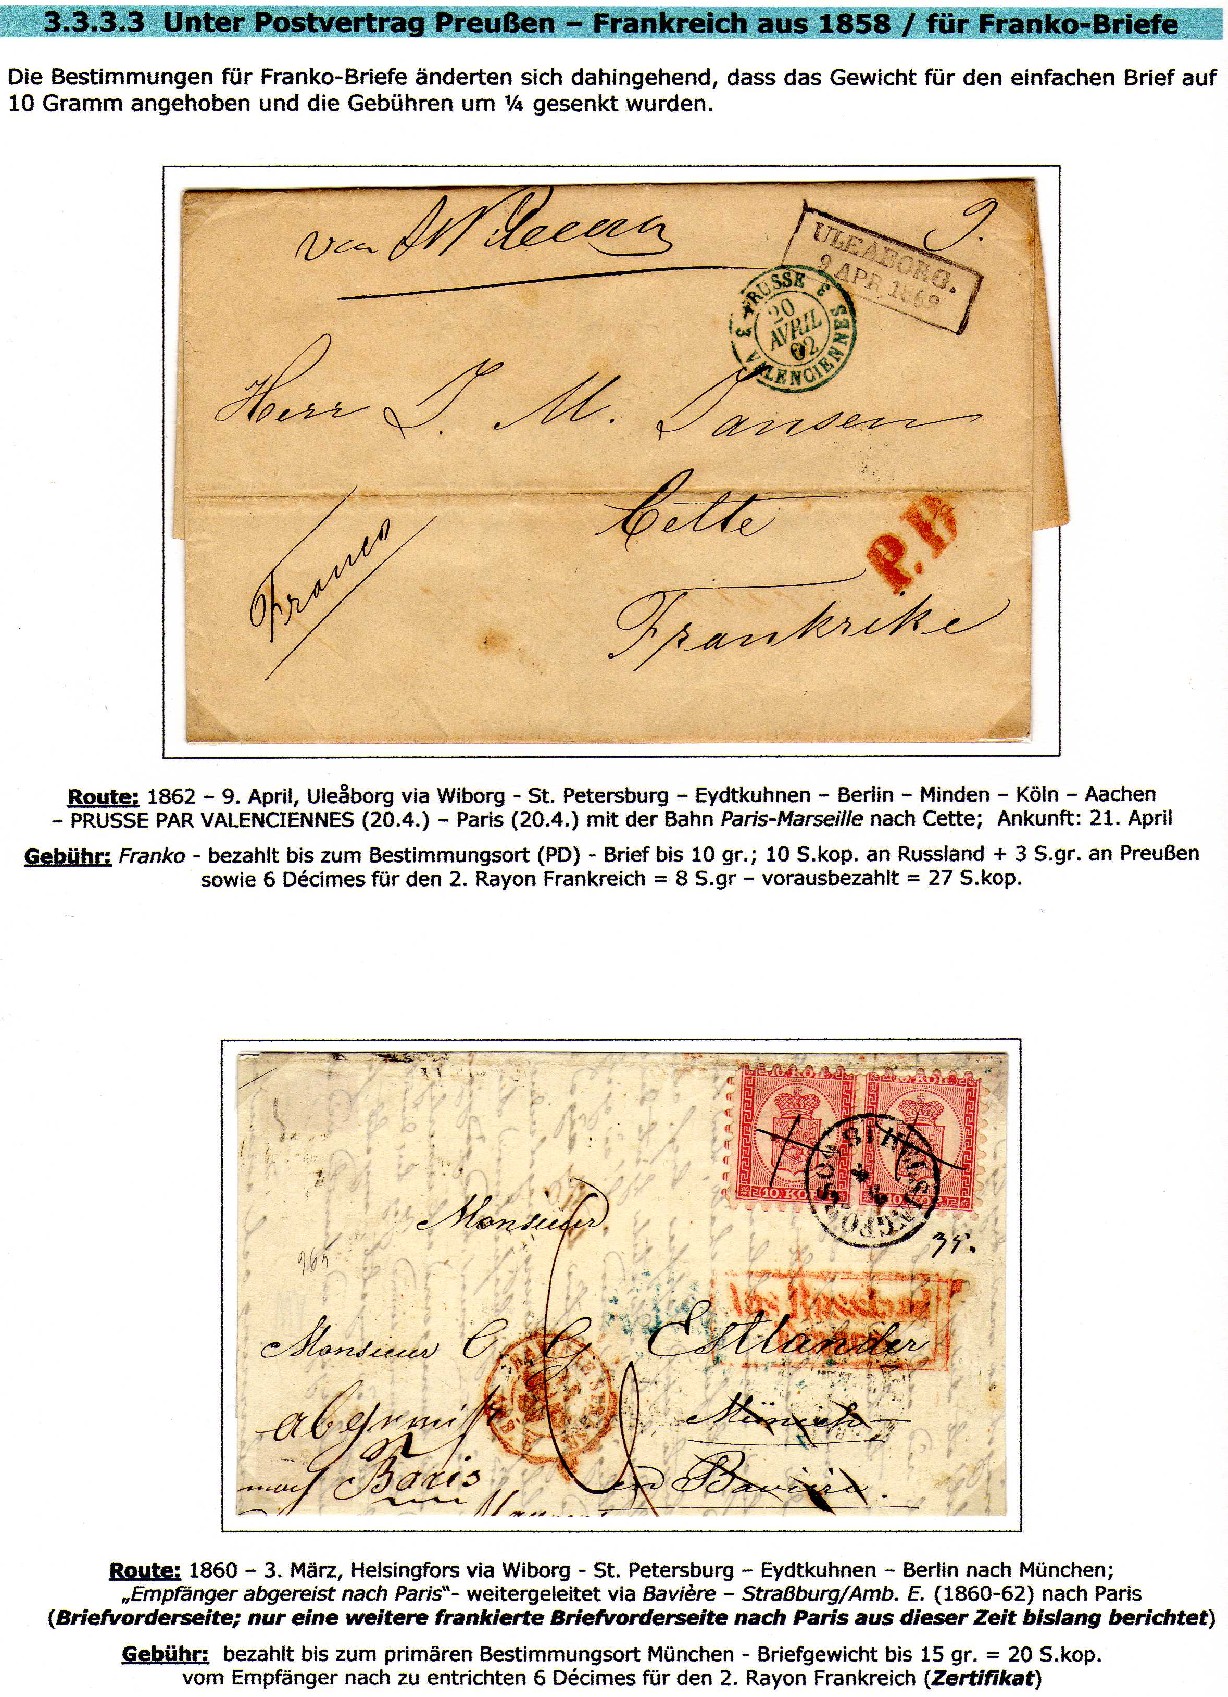 3.3.3.3 Unter Postvertrag Preußen – Frankreich aus 1858 / für Franko-Briefe
Die Bestimmungen für Franko-Briefe änderten sich dahingehend, dass das Gewicht für den einfachen Brief auf
10 Gramm angehoben und die Gebühren um ¼ gesenkt wurden.
9.
ULEABORG.
9 APR. 1862
PRUSSE
3 VALENCIENNES 3
20
AVRIL
62
Herr J. M. Jansen
Cette
Franco
P.D.
Frankrike
Route: 1862 – 9. April, Uleåborg via Wiborg - St. Petersburg – Eydtkuhnen – Berlin – Minden – Köln – Aachen
– PRUSSE PAR VALENCIENNES (20.4.) – Paris (20.4.) mit der Bahn Paris-Marseille nach Cette; Ankunft: 21. April
Gebühr: Franko - bezahlt bis zum Bestimmungsort (PD) - Brief bis 10 gr.; 10 S.kop. an Russland + 3 S.gr. an Preußen
sowie 6 Décimes für den 2. Rayon Frankreich = 8 S.gr – vorausbezahlt = 27 S.kop.
10 KOP.
HELSINGFORS
35.
Monsieur
Monsieur C. G. Estlander
München
en Bavière.
abgereist
nach Paris
Route: 1860 – 3. März, Helsingfors via Wiborg - St. Petersburg – Eydtkuhnen – Berlin nach München;
„Empfänger abgereist nach Paris“- weitergeleitet via Bavière – Straßburg/Amb. E. (1860-62) nach Paris
(Briefvorderseite; nur eine weitere frankierte Briefvorderseite nach Paris aus dieser Zeit bislang berichtet)
Gebühr: bezahlt bis zum primären Bestimmungsort München - Briefgewicht bis 15 gr. = 20 S.kop.
vom Empfänger nach zu entrichten 6 Décimes für den 2. Rayon Frankreich (Zertifikat)